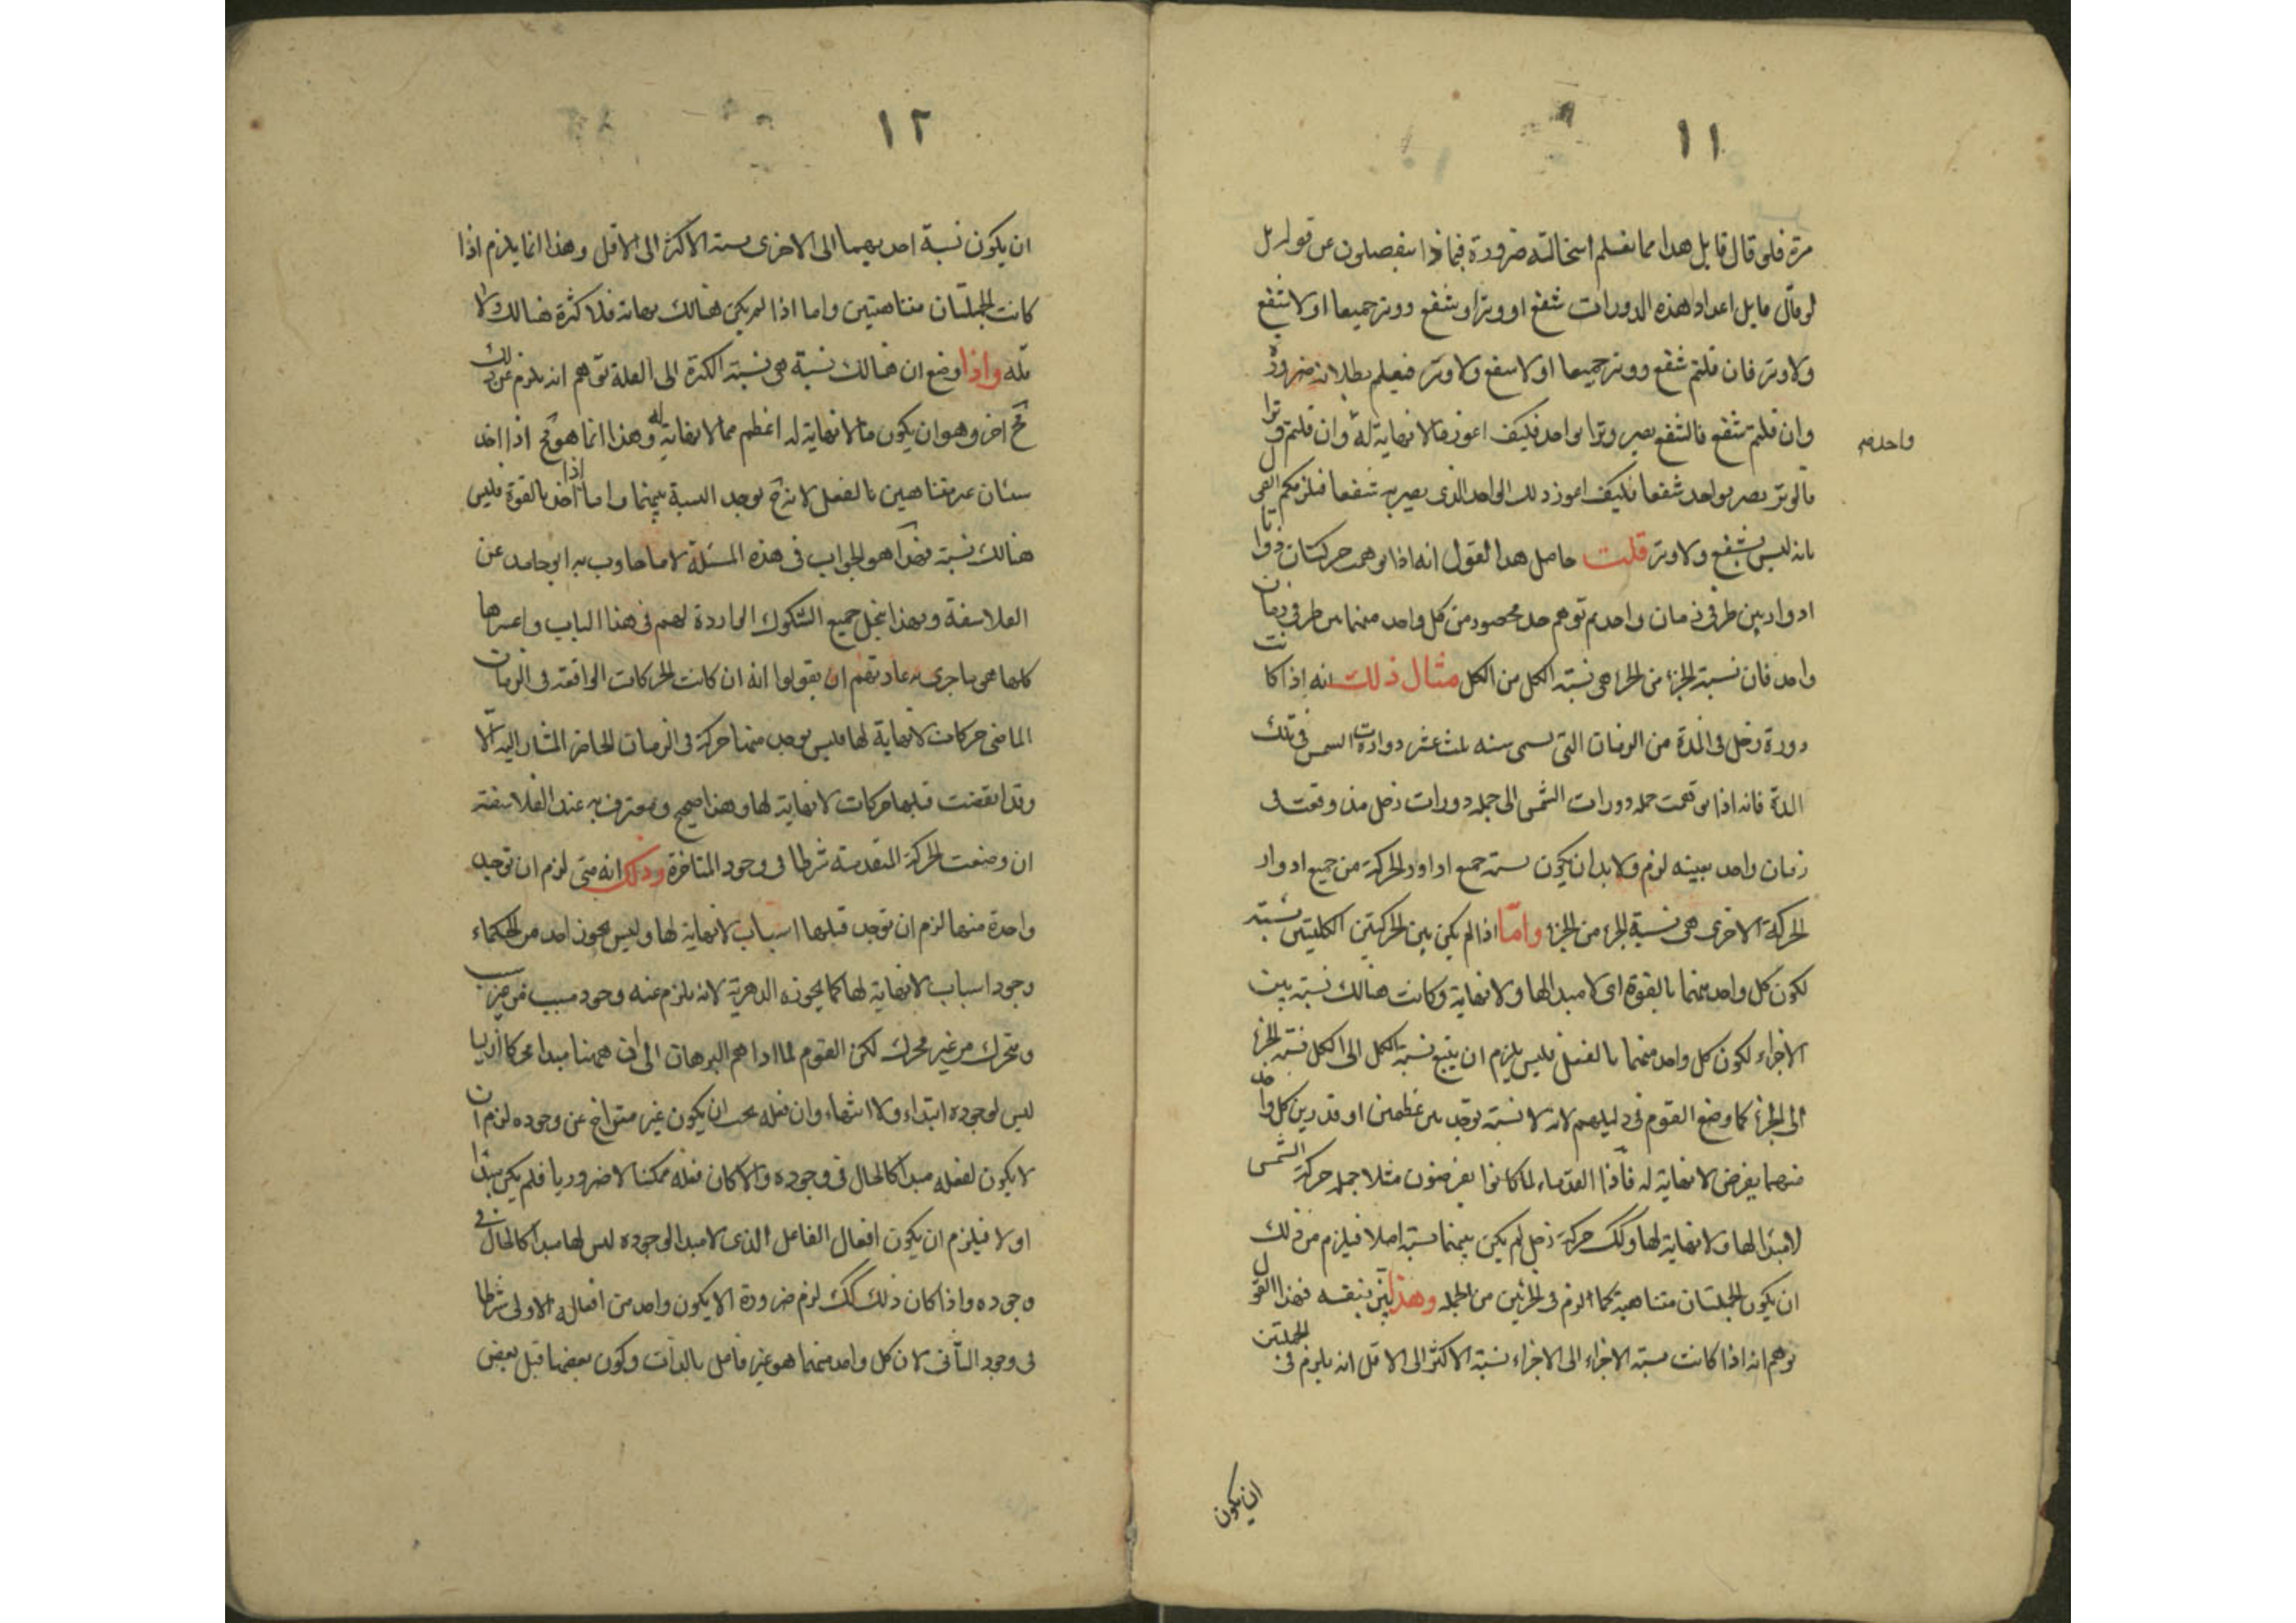 ١١
مرة فلو قال قايل هدا مما يعلم استحالته ضرورة فبماذا تنفصلون عن قوله بل
لو قال قايل اعداد هذه الدورات شفع او وتر او شفع ووتر جميعا او لا شفع
ولا وتر فان قلتم شفع ووتر جميعا او لا شفع ولا وتر فيعلم بطلانه ضرورة
وان قلتم شفع فالشفع يصير وترا بواحد فكيف اعوز ما لا نهاية له وان قلتم وترا
واحد صح
فالوتر يصير بواحد شفعا فكيف اعوز ذلك الواحد الذى يصير به شفعا فيلزمكم القول
بانه ليس بشفع ولا وتر قلت حاصل هدا القول انه اذا توهمت حركتان ذواتا
ادوار بين طرفى زمان واحد ثم توهم حد محصور من كل واحد منهما بين طرفى زمان
واحد فان نسبة الجزء من الجزء هى نسبة الكل من الكل مثال ذلك انه اذا كانت
دورة زحل فى المدة من الزمان التى تسمى سنه ثلث عشر دوارت الشمس فى تلك
المدة فانه اذا توهمت جملة دورات الشمس الى جملة دورات زحل مذ وقعت فى
زمان واحد بعينه لزم ولا بد ان يكون نسبة جميع ادوار الحركة من جميع ادوار
الحركة الاخرى هى نسبة الجزء من الجزء واما اذا لم يكن بين الحركتين الكليتين نسبة
لكون كل واحد منهما بالقوة اى لا مبدا لها ولا نهاية وكانت هنالك نسبة بين
الاجزاء لكون كل واحد منهما بالفعل فليس يلزم ان يتبع نسبة الكل الى الكل نسبة الجزء
الى الجزء كما وضع القوم فى دليلهم لانه لا نسبة توجد بين عظمين او قدرين كل واحد
منهما يفرض لا نهاية له فاذا القدماء لما كانوا يفرضون مثلا جملة حركة الشمس
لا مبدا لها ولا نهاية لها وكك حركة زحل لم يكن بينهما نسبة اصلا فيلزم من ذلك
ان يكون الجملتان متناهية كما لزم فى الجزئين من الجملة وهذا بين بنفسه فهذا القول
يوهم انه اذا كانت نسبة الاجزاء الى الاجزاء نسبة الاكثر الى الاقل انه يلزم فى الجملتين
ان يكون
١٢
ان يكون نسبة احديهما الى الاخرى نسبة الاكثر الى الاقل وهذا انما يلزم اذا
كانت الجملتان متناهيتين واما اذا لم يكن هنالك نهاية فلا كثرة هنالك ولا
قلة واذا وضع ان هنالك نسبة هى نسبة الكثرة الى القلة توهم انه يلزم عن ذلك
مح اخر وهو ان يكون ما لا نهاية له اعظم مما لا نهاية له وهذا انما هو مح اذا اخذ
شيئان غير متناهيين بالفعل لانه ح يوجد النسبة بينهما واما اذا اخذ بالقوة فليس
هنالك نسبة فهذا هو الجواب فى هذه المسئلة لا ما جاوب به ابو حامد عن
الفلاسفة وبهذا ينحل جميع الشكوك الواردة لهم فى هذا الباب واعسرها
كلها هى ما جرى به عادتهم ان يقولوا انه ان كانت الحركات الواقعة فى الزمان
الماضى حركات لا نهاية لها فليس يوجد منها حركة فى الزمان الحاضر المشار اليه الا
وقد انقضت قبلها حركات لا نهاية لها وهذا صحيح ومعترف به عند الفلاسفة
ان وضعت الحركة المتقدمة شرطا فى وجود المتاخرة وذلك انه متى لزم ان توجد
واحدة منها لزم ان توجد قبلها اسباب لا نهاية لها وليس يجوز احد من الحكماء
وجود اسباب لا نهاية لها كما يجوزه الدهرية لانه يلزم عنه وجود مسبب من غير سبب
ومتحرك من غير محرك لكن القوم لما اداهم البرهان الى ان ههنا مبدا محركا ازليا
ليس لوجوده ابتداء ولا انتهاء وان فعله يجب ان يكون غير متراخ عن وجوده لزم ان
لا يكون لفعله مبدا كالحال فى وجوده والا كان فعله ممكنا لا ضروريا فلم يكن مبدا
اولا فيلزم ان يكون افعال الفاعل الذى لا مبدا لوجوده ليس لها مبدا كالحال فى
وجوده واذا كان ذلك كك لزم ضرورة الا يكون واحد من افعاله الاولى شرطا
فى وجود الثانى لان كل واحد منهما هو غير فاعل بالذات وكون بعضها قبل بعض